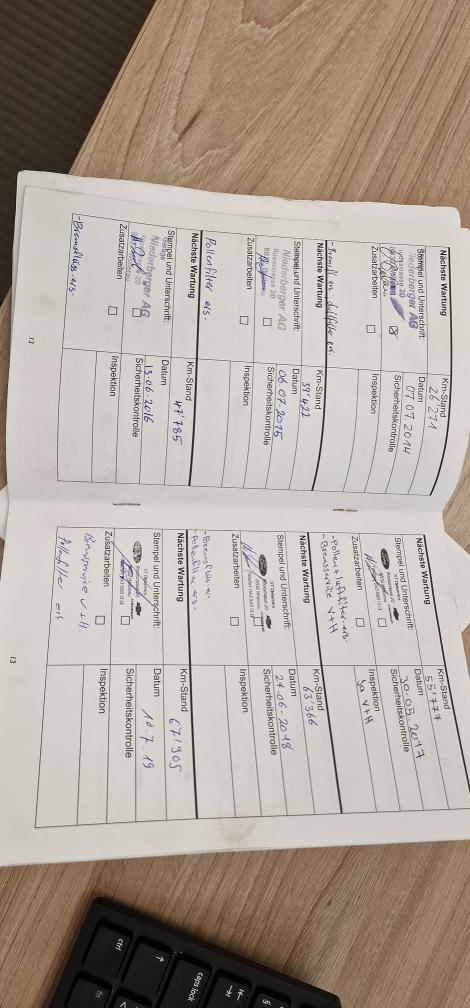 Km-Stand
26'271
Nächste Wartung
Datum
07.07.2014
Stempel und Unterschrift:
Niederberger AG
Sicherheitskontrolle
Zusatzarbeiten
Inspektion
Km-Stand
39'422
Nächste Wartung
Datum
06.07.2015
Stempel und Unterschrift:
Niederberger AG
Sicherheitskontrolle
Zusatzarbeiten
Inspektion
Pollenfilter ers.
Km-Stand
47'785
Nächste Wartung
Datum
13.06.2016
Stempel und Unterschrift:
Garage
Niederberger AG
Sicherheitskontrolle
Zusatzarbeiten
Inspektion
-Bremsflüss. ers.
12
Km-Stand
55'777
Nächste Wartung
Datum
30.03.2017
Stempel und Unterschrift:
Sicherheitskontrolle
Zusatzarbeiten
Inspektion
V+H
-Pollen+Luftfilter ers.
-Bremsservice V+H
Km-Stand
63'366
Nächste Wartung
Datum
27.06.2018
Stempel und Unterschrift:
Sicherheitskontrolle
Zusatzarbeiten
Inspektion
-Pollenfilter ers.
Km-Stand
67'905
Nächste Wartung
Datum
10.7.19
Stempel und Unterschrift:
Sicherheitskontrolle
Zusatzarbeiten
Inspektion
Bremsservice v+H.
Pollenfilter ers
13
caps lock
ctrl
fn